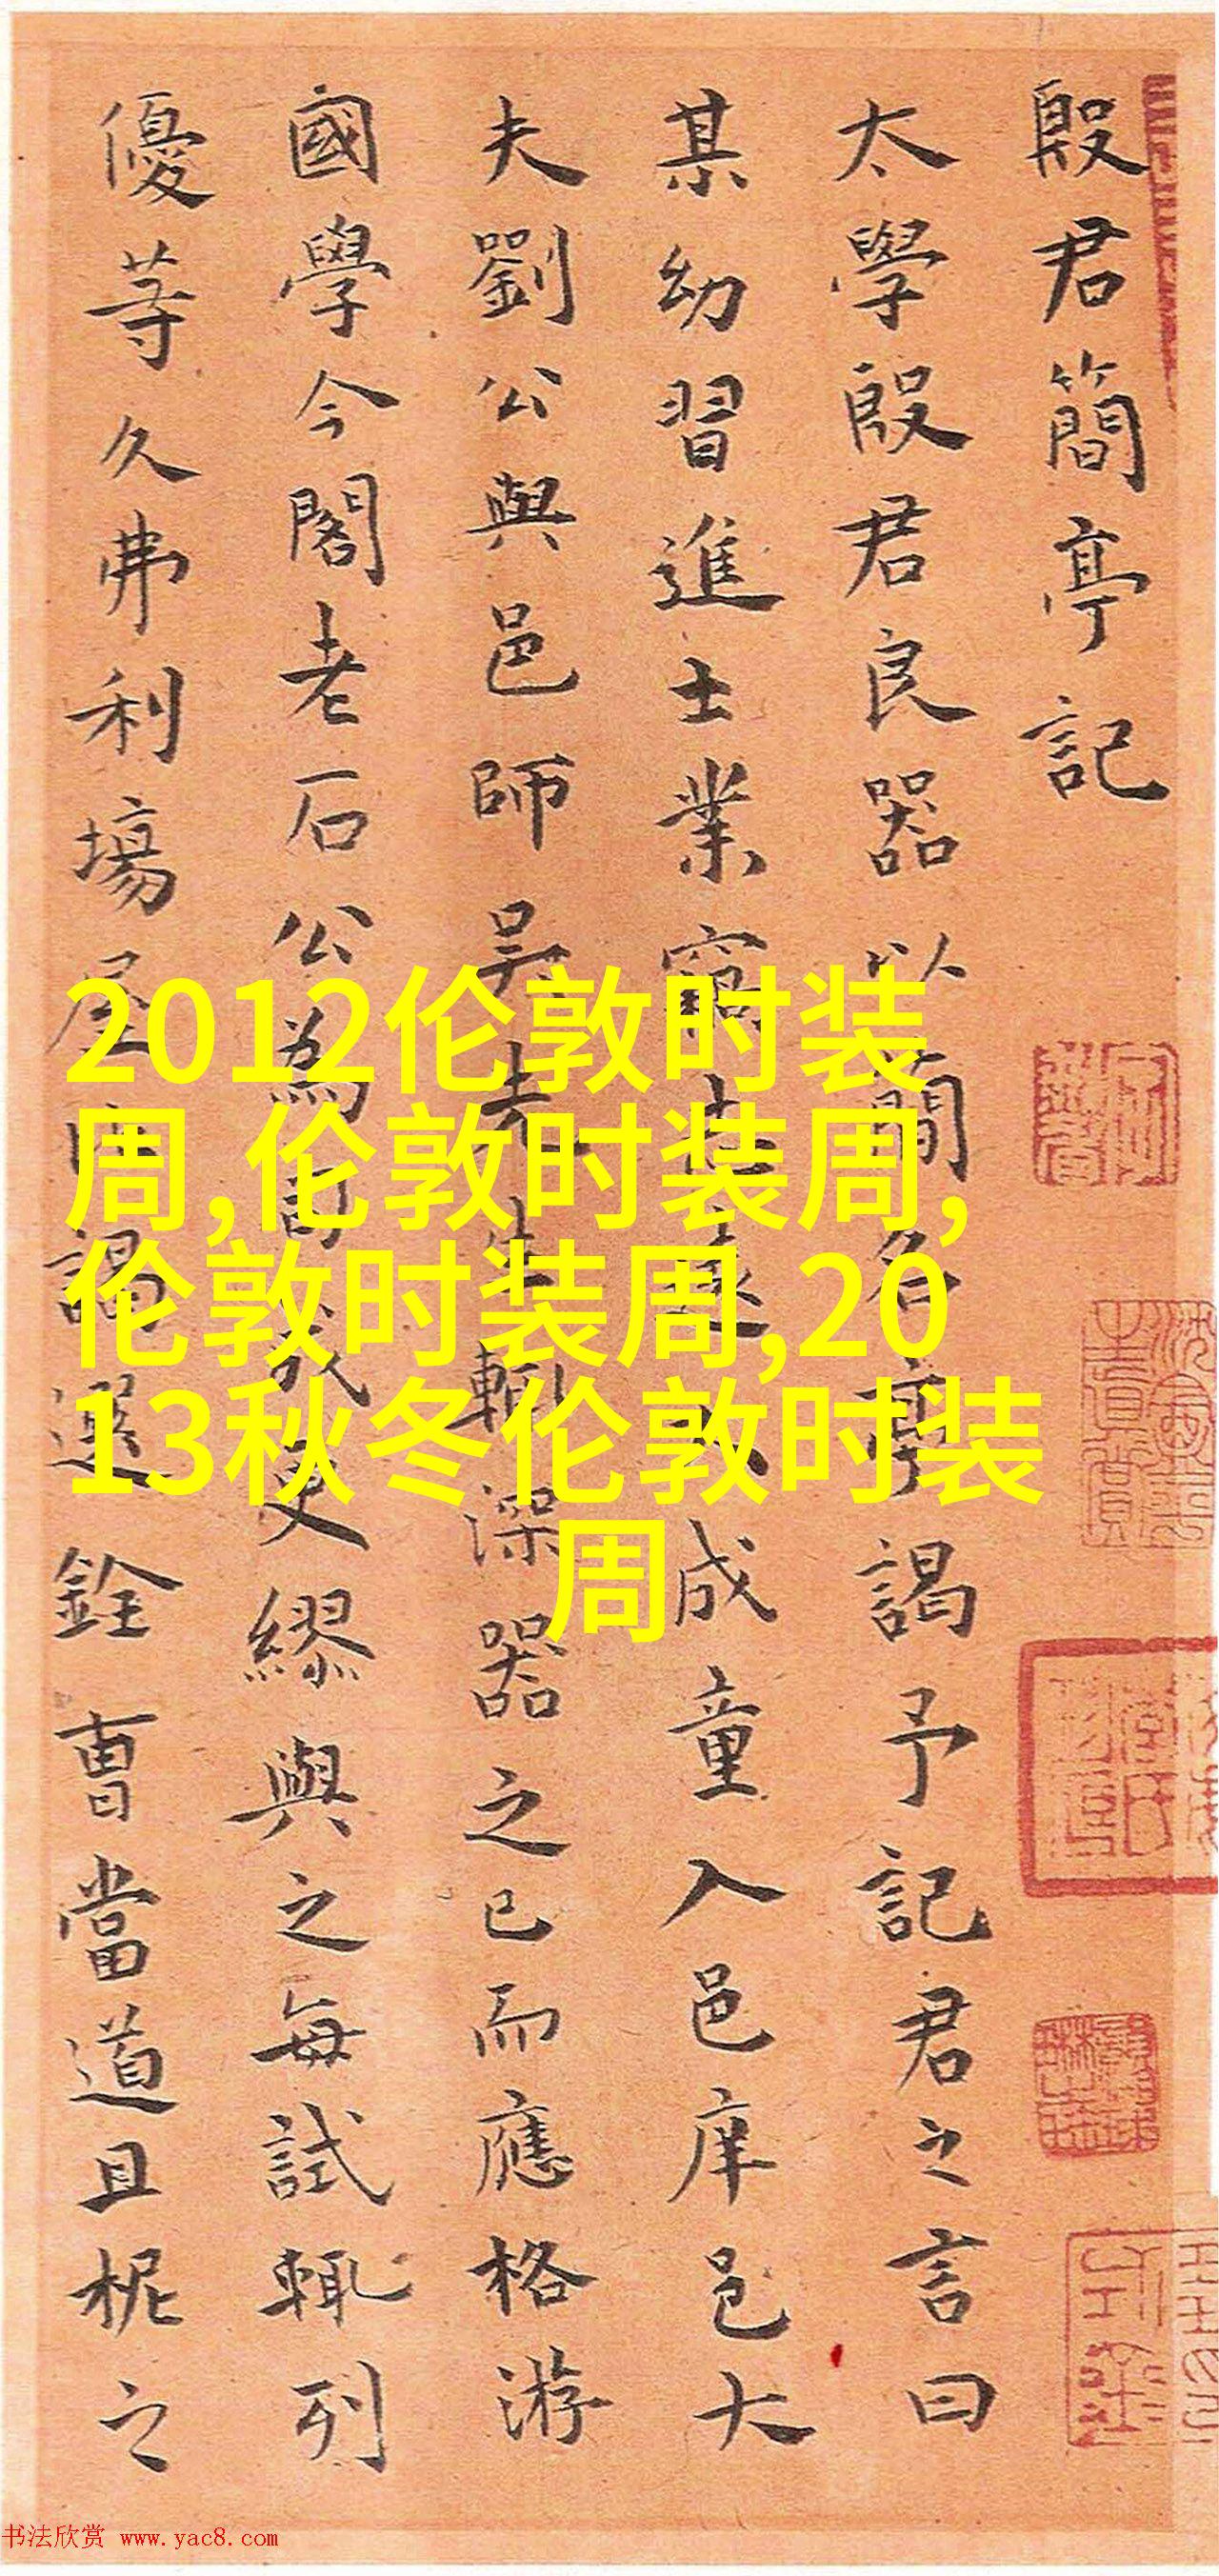 殷君簡亭記
太學殷君良器以簡名亭謁予記君之言曰
某幼習進士業窮古邃成童入邑庠邑大
夫劉公與邑師吳先生輒深器之已而應格游
國學今閣老石公為司成更繆與之每試輒列
優等久弗利場屋謁選銓曹當道且柅之
2012伦敦时装
周,伦敦时装周,
伦敦时装周,20
13秋冬伦敦时装
周
书法欣赏 www.yac8.com